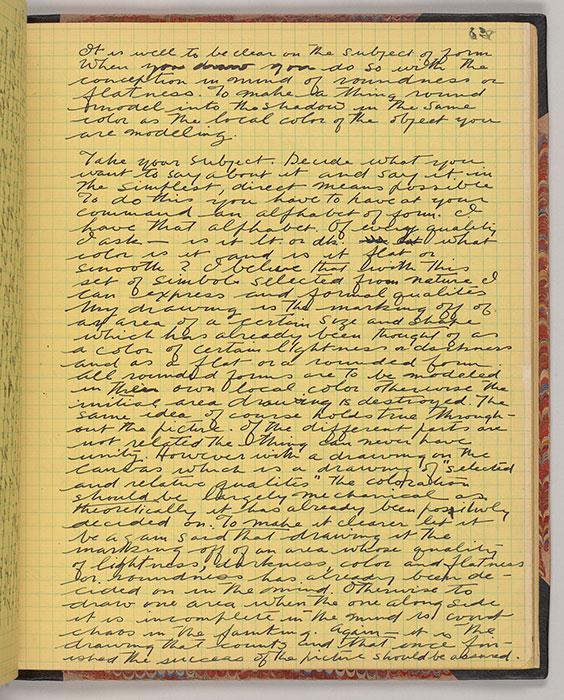 It is well to be clear on the subject of form
When you draw you do so with the
conception in mind of roundness or
flatness. To make a thing round
model into the shadow in the same
color as the local color of the object you
are modeling.
Take your subject. Decide what you
want to say about it and say it in
the simplest, direct means possible
To do this you have to have at your
command an alphabet of form. I
have that alphabet. Of every quality
I ask — is it lt. or dk. what
color is it and is it flat or
smooth? I believe that with this
set of simbols selected from nature I
can express and formal qualites
My drawing is the marking off of
an area of a certain size and shape
which has already been thought of as
a color of certain lightness or darkness
and as a flat or a rounded form
all round forms are to be modeled
in their own local color otherwise the
initial area drawing is destroyed. The
same idea of course holds true through-
out the picture. If the different parts are
not related the thing can never have
unity. However with a drawing on the
canvas which is a drawing of "selected
and relative qualites" the coloration
should be largely mechanical as
theoretically it has already been positively
decided on. To make it clearer let it
be again said that drawing it the
marking off of an area whose quality
of lightness, darkness, color and flatness
or roundness has already been de-
cided on in the mind. Otherwise to
draw one area when the one along side
it is incomplete in the mind is to court
chaos in the painting. Again — it is the
drawing that counts and that once fin-
ished the success of the picture should be assured.